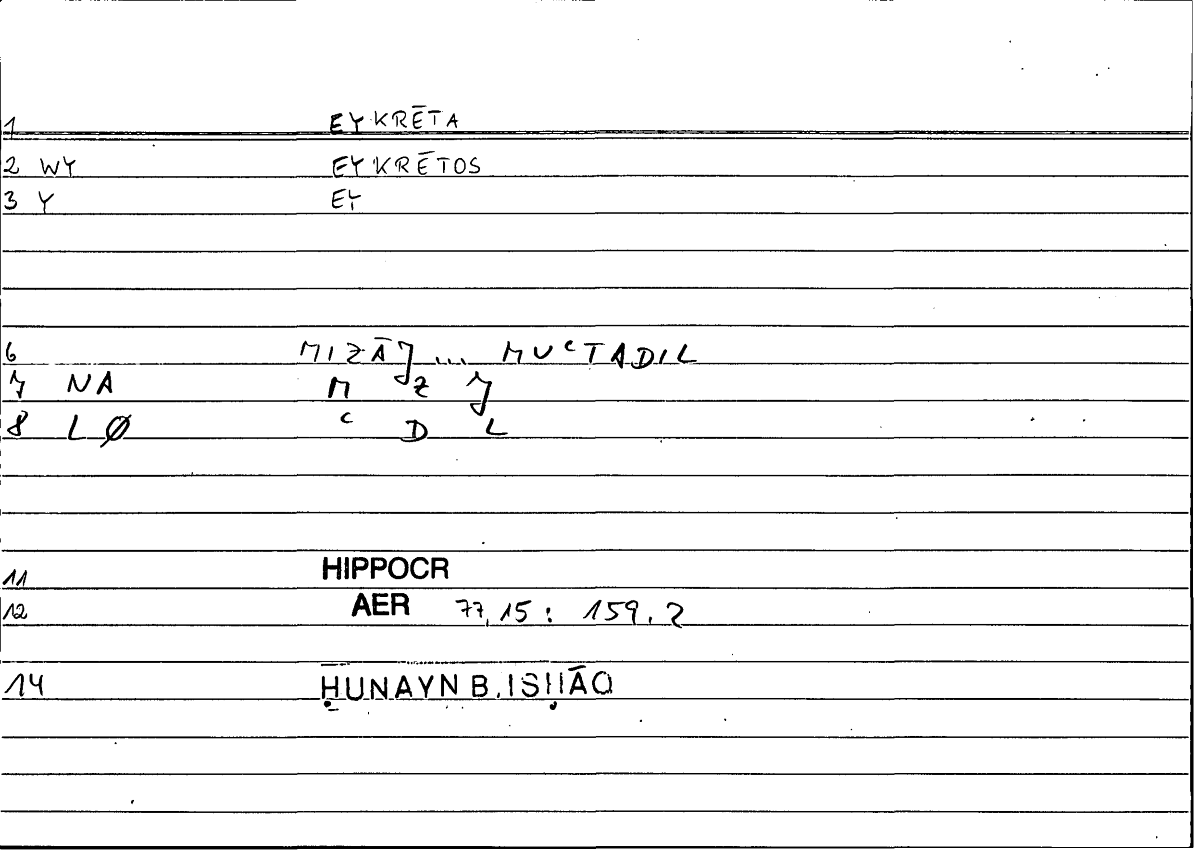 1 EYKRĒTA
2 WY EYKRĒTOS
3 Y EY
6 MIZĀJ ... MUʿTADIL
7 NA M Z J
8 LØ ʿ D L
11 HIPPOCR
12 AER 77,15 : 159.2
14 ḤUNAYN B. ISḤĀQ